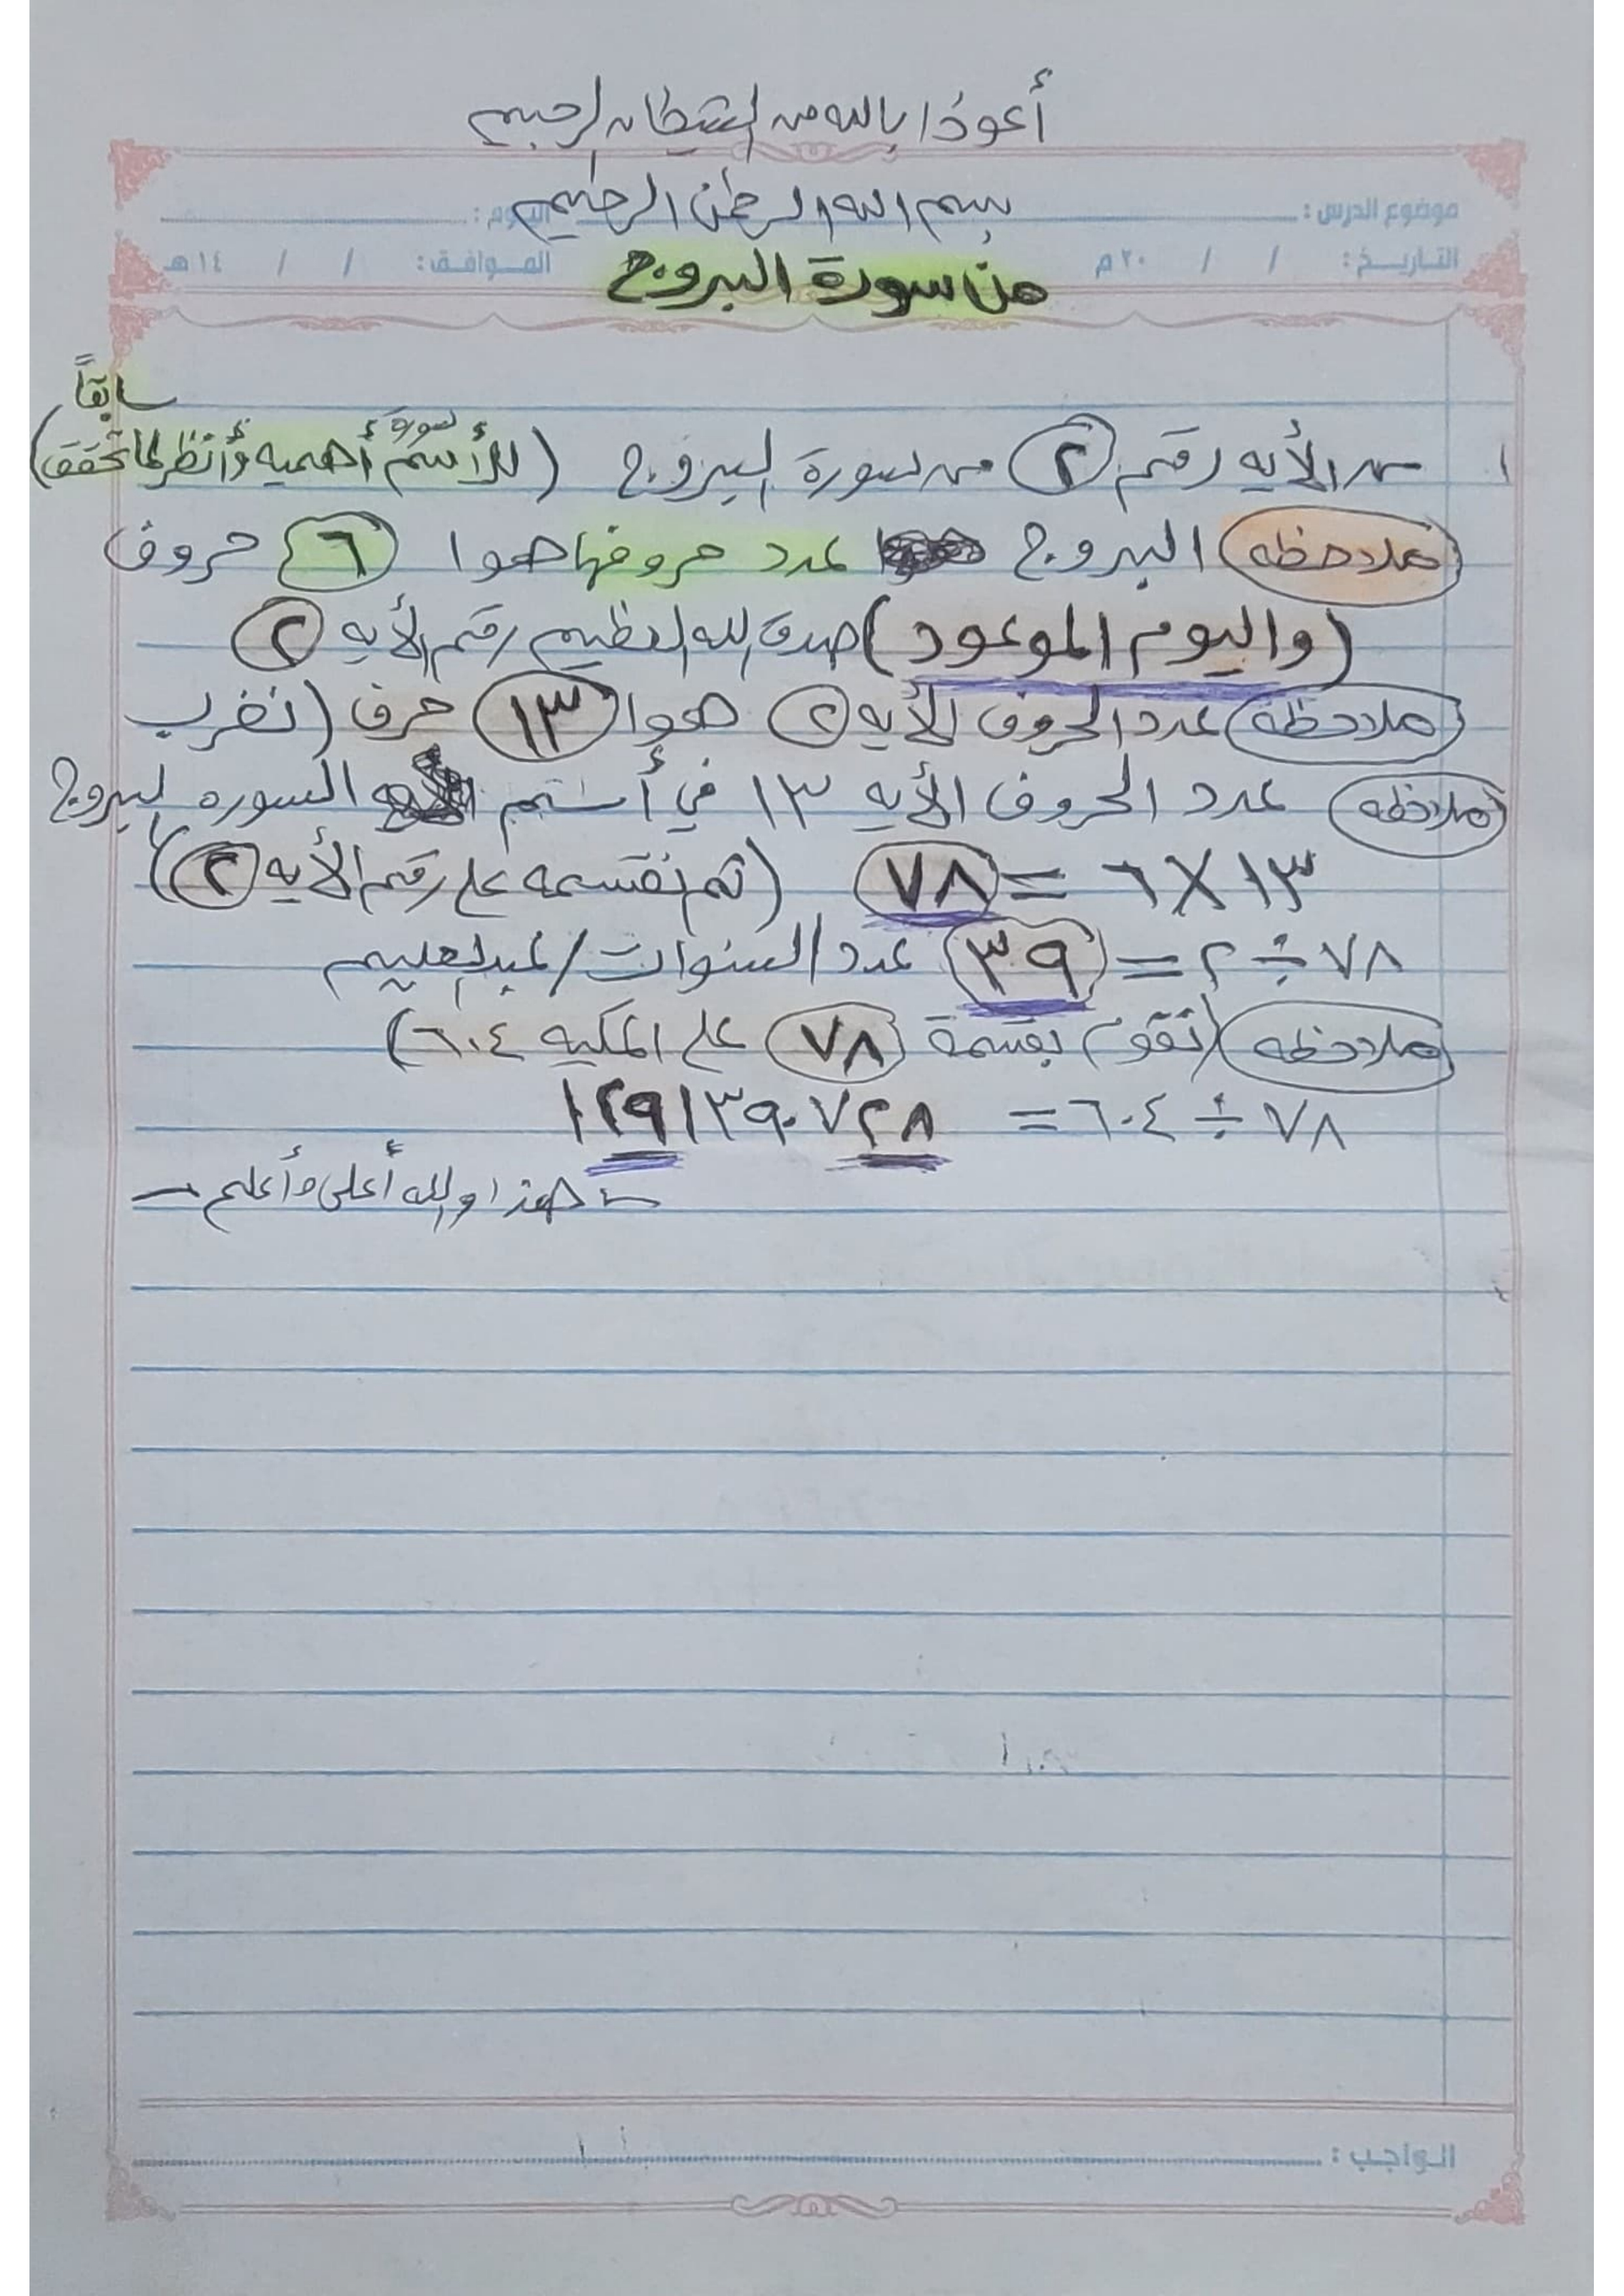 أعوذا بالله من الشيطان الرجيم
بسم الله الرحمن الرحيم
موضوع الدرس : اليوم :
التاريخ : / / ٢٠ م الموافق : / / ١٤ هـ
من سورة البروج
سابقاً
١ من الأيه رقم ٢ من سورة البروج (للأسم سورة أهميه وأنظر لما تحقق)
ملاحظه البروج عدد حروفها هوا ٦ حروف
(واليوم الموعود) صدق الله العظيم رقم الأيه ٢
ملاحظة عدد الحروف الأيه ٢ هوا ١٣ حرف (نضرب
ملاحظه عدد الحروف الأيه ١٣ في أسم السوره البروج
١٣ × ٦ = ٧٨ (ثم نقسمه على رقم الأيه ٢)
٧٨ ÷ ٢ = ٣٩ عدد السنوات / عبدالعليم
ملاحظه (نقوم بقسمة ٧٨ على المكيه ٦٠٤)
٧٨ ÷ ٦٠٤ = ١٢٩١٣٩٠٧٢٨.
هذا والله أعلى وأعلم
الواجب :